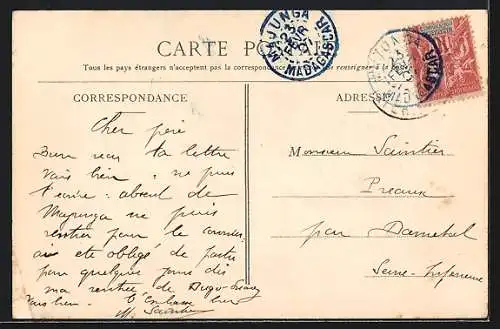 CARTE POSTALE
Tous les pays étrangers n'acceptent pas la correspondance au renseigner à la poste
MAJUNGA
23
FEVR
MADAGASCAR
CORRESPONDANCE
ADRESSE
Cher père
Bien reçu ta lettre
Vais bien ne puis
t'écrire absent de
Majunga ne puis
rentrer pour le courrier
ai été obligé de partir
pour quelques jours dès
ma rentrée de Diego-Suarez
Vais bien. T'Embrasse
M. Saintier
Monsieur Saintier
Préaux
par Darnétal
Seine-Inférieure